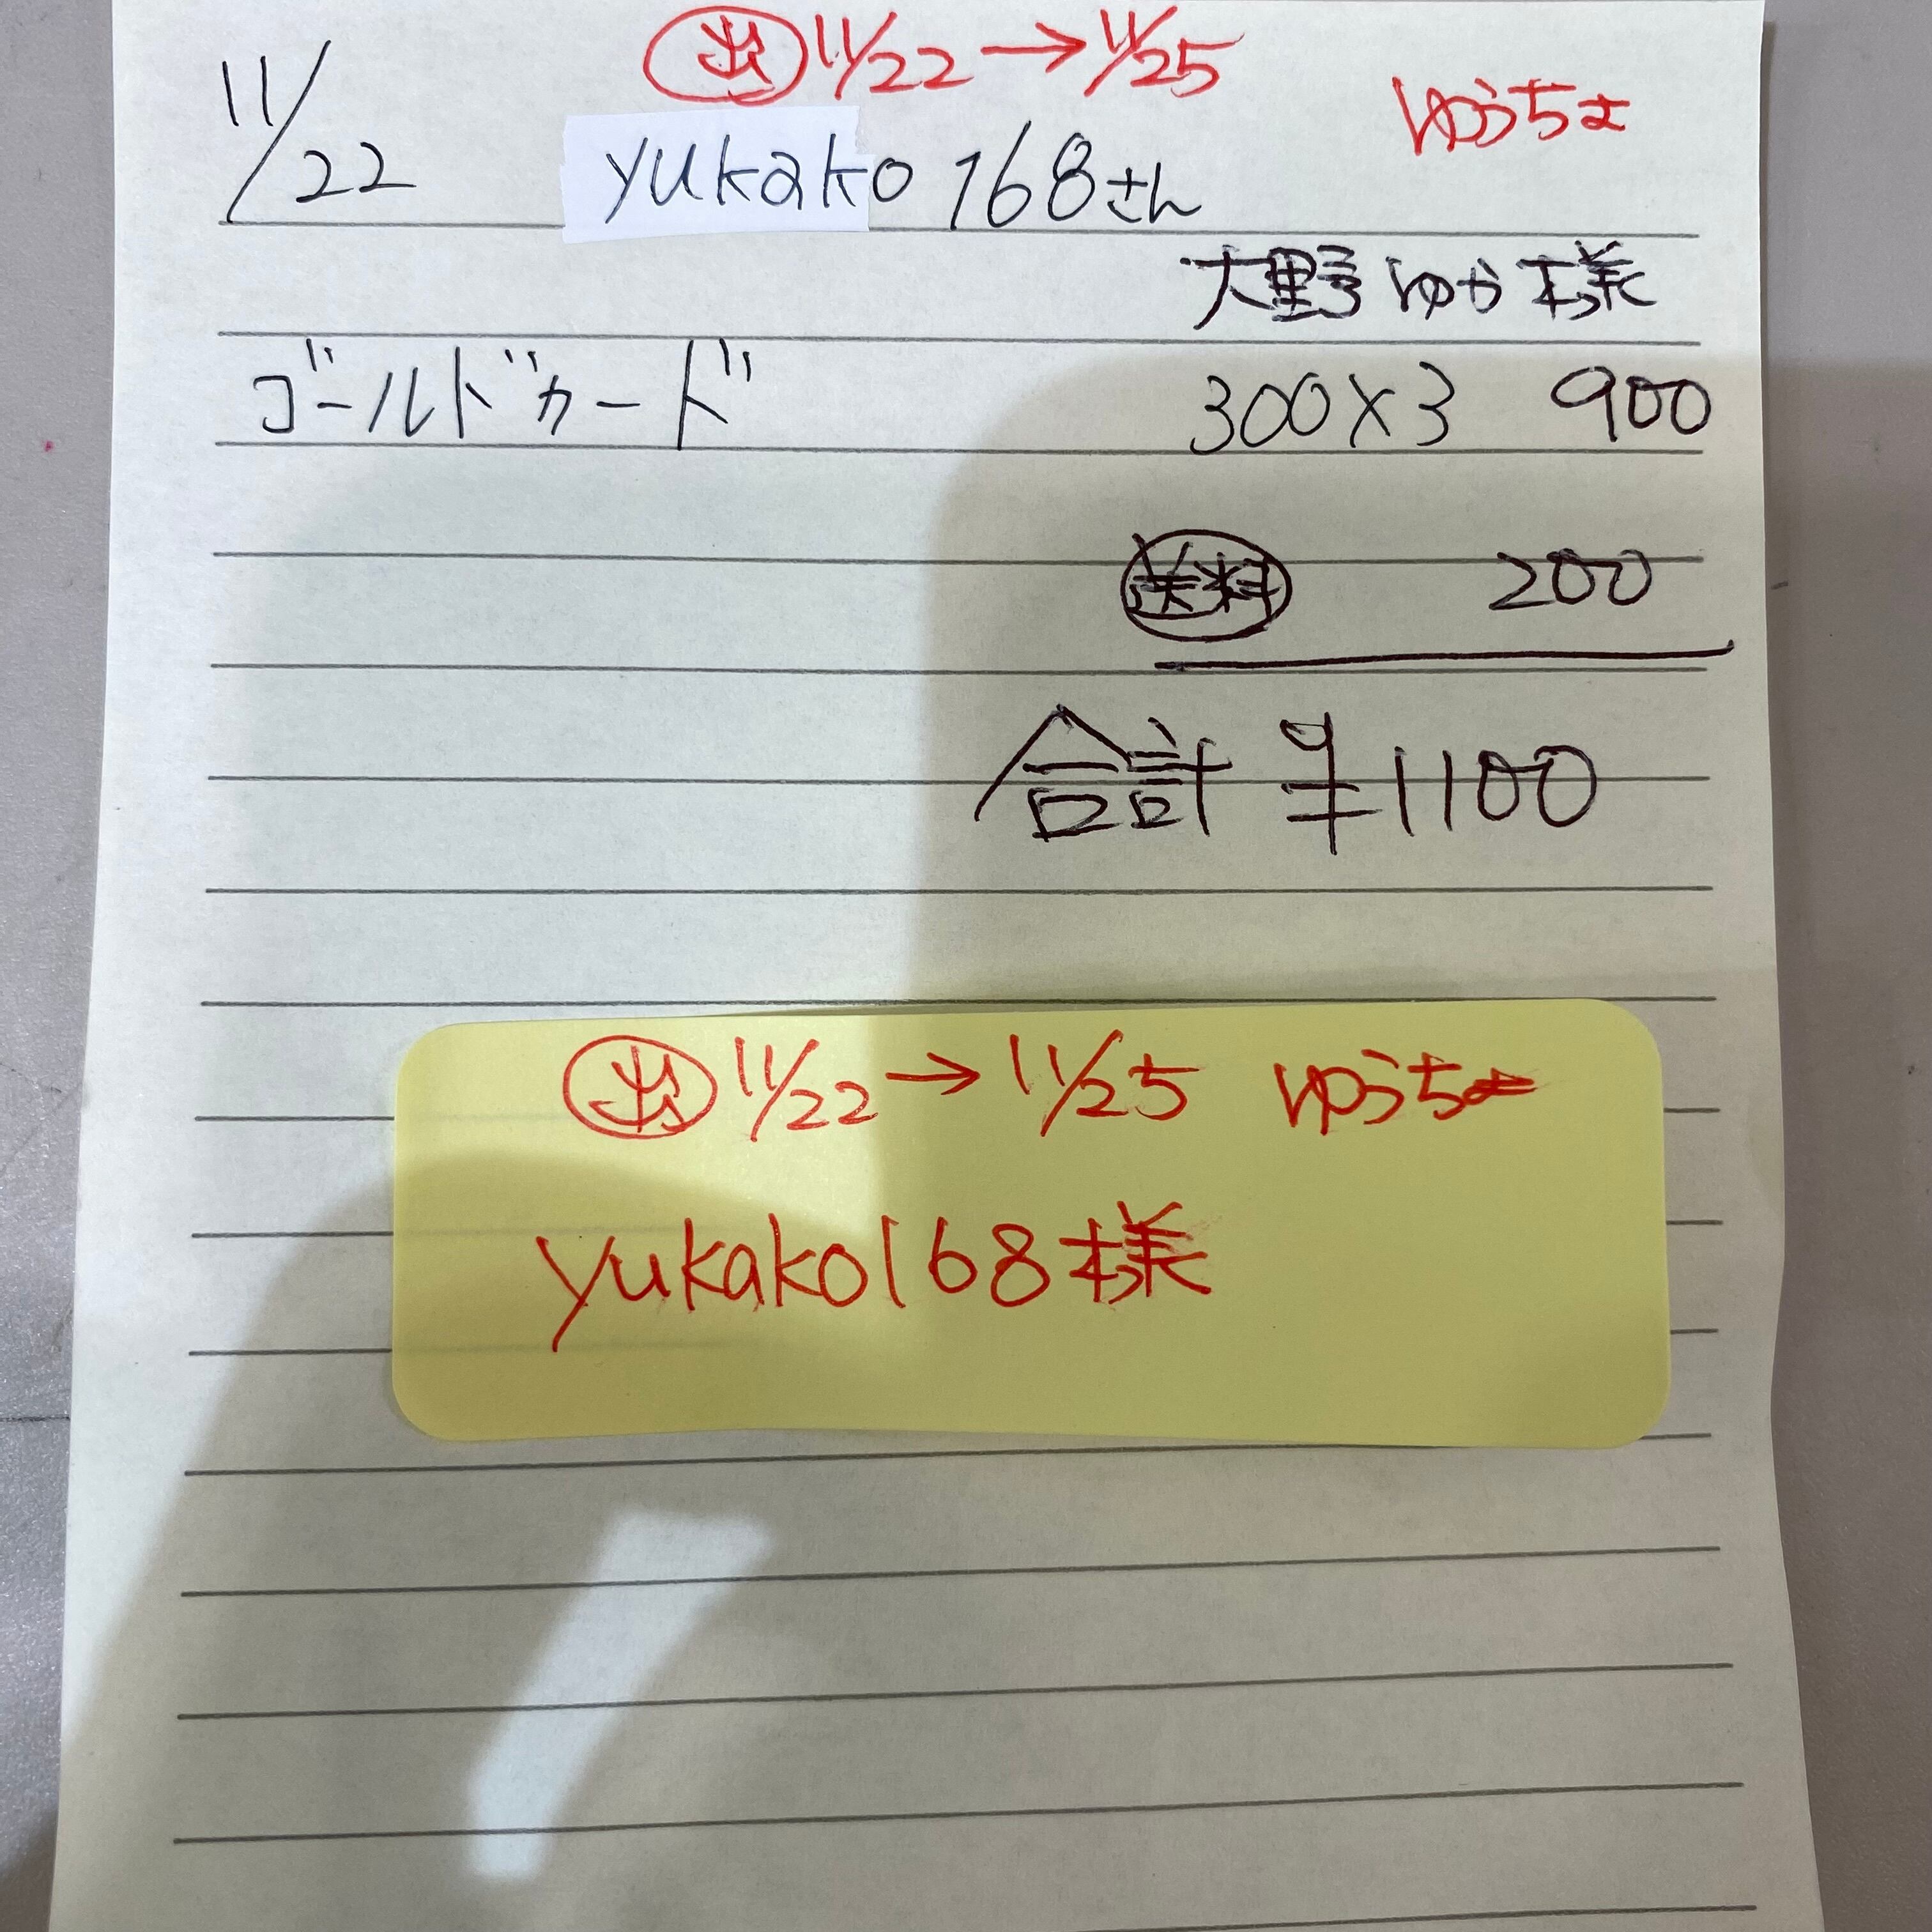 出 11/22→11/25 ゆうちょ
11/22 yukako168さん
大野ゆか様
ゴールドカード 300×3 900
送料 200
合計 ¥1100
出 11/22→11/25 ゆうちょ
yukako168様